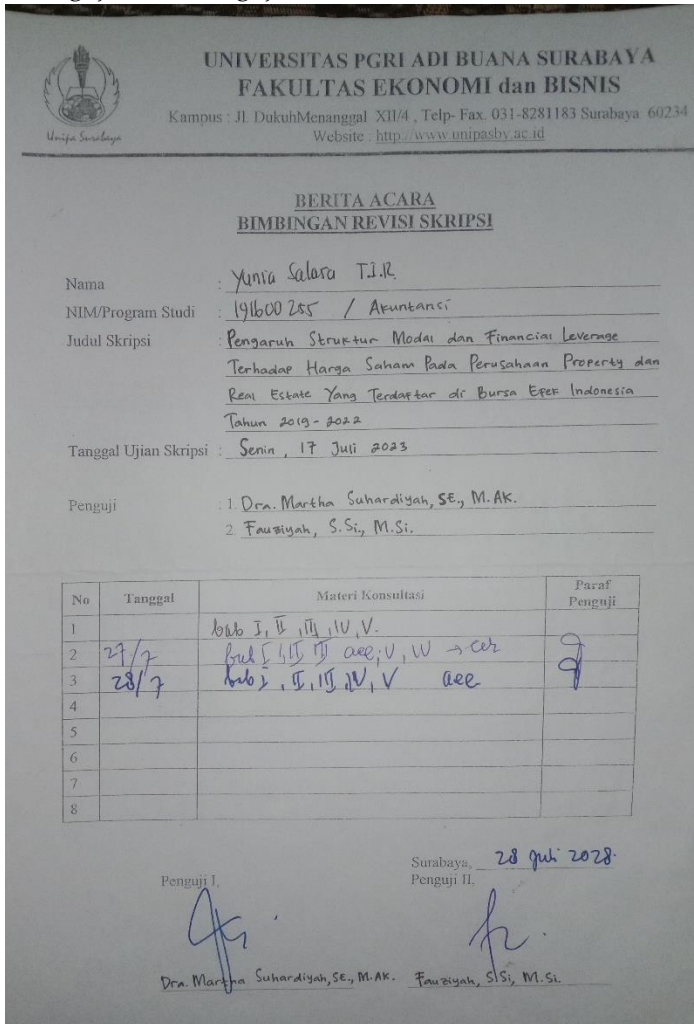 UNIVERSITAS PGRI ADI BUANA SURABAYA
FAKULTAS EKONOMI dan BISNIS
Kampus : Jl. DukuhMenanggal XII/4 , Telp- Fax. 031-8281183 Surabaya 60234
Website : http://www.unipasby.ac.id
Unipa Surabaya
BERITA ACARA
BIMBINGAN REVISI SKRIPSI
Nama : Yunia Salara T.I.R.
NIM/Program Studi : 191600255 / Akuntansi
Judul Skripsi : Pengaruh Struktur Modal dan Financial Leverage
Terhadap Harga Saham Pada Perusahaan Property dan
Real Estate Yang Terdaftar di Bursa Efek Indonesia
Tahun 2019-2022
Tanggal Ujian Skripsi : Senin, 17 Juli 2023
Penguji : 1. Dra. Martha Suhardiyah, SE., M.AK.
2. Fauziyah, S.Si., M.Si.
No Tanggal Materi Konsultasi Paraf Penguji
1 bab I, II, III, IV, V.
2 27/7 bab I, II, III acc, V, IV →
3 28/7 bab I, II, III, IV, V acc
4
5
6
7
8
Surabaya, 28 Juli 2028.
Penguji I, Penguji II,
Dra. Martha Suhardiyah, SE., M.AK. Fauziyah, S.Si, M.Si.